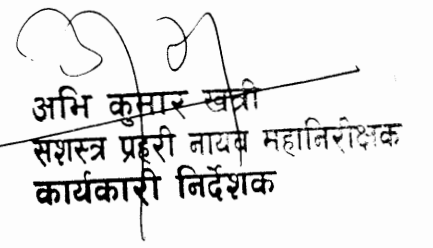 अभि कुमार खत्री
सशस्त्र प्रहरी नायब महानिरीक्षक
कार्यकारी निर्देशक